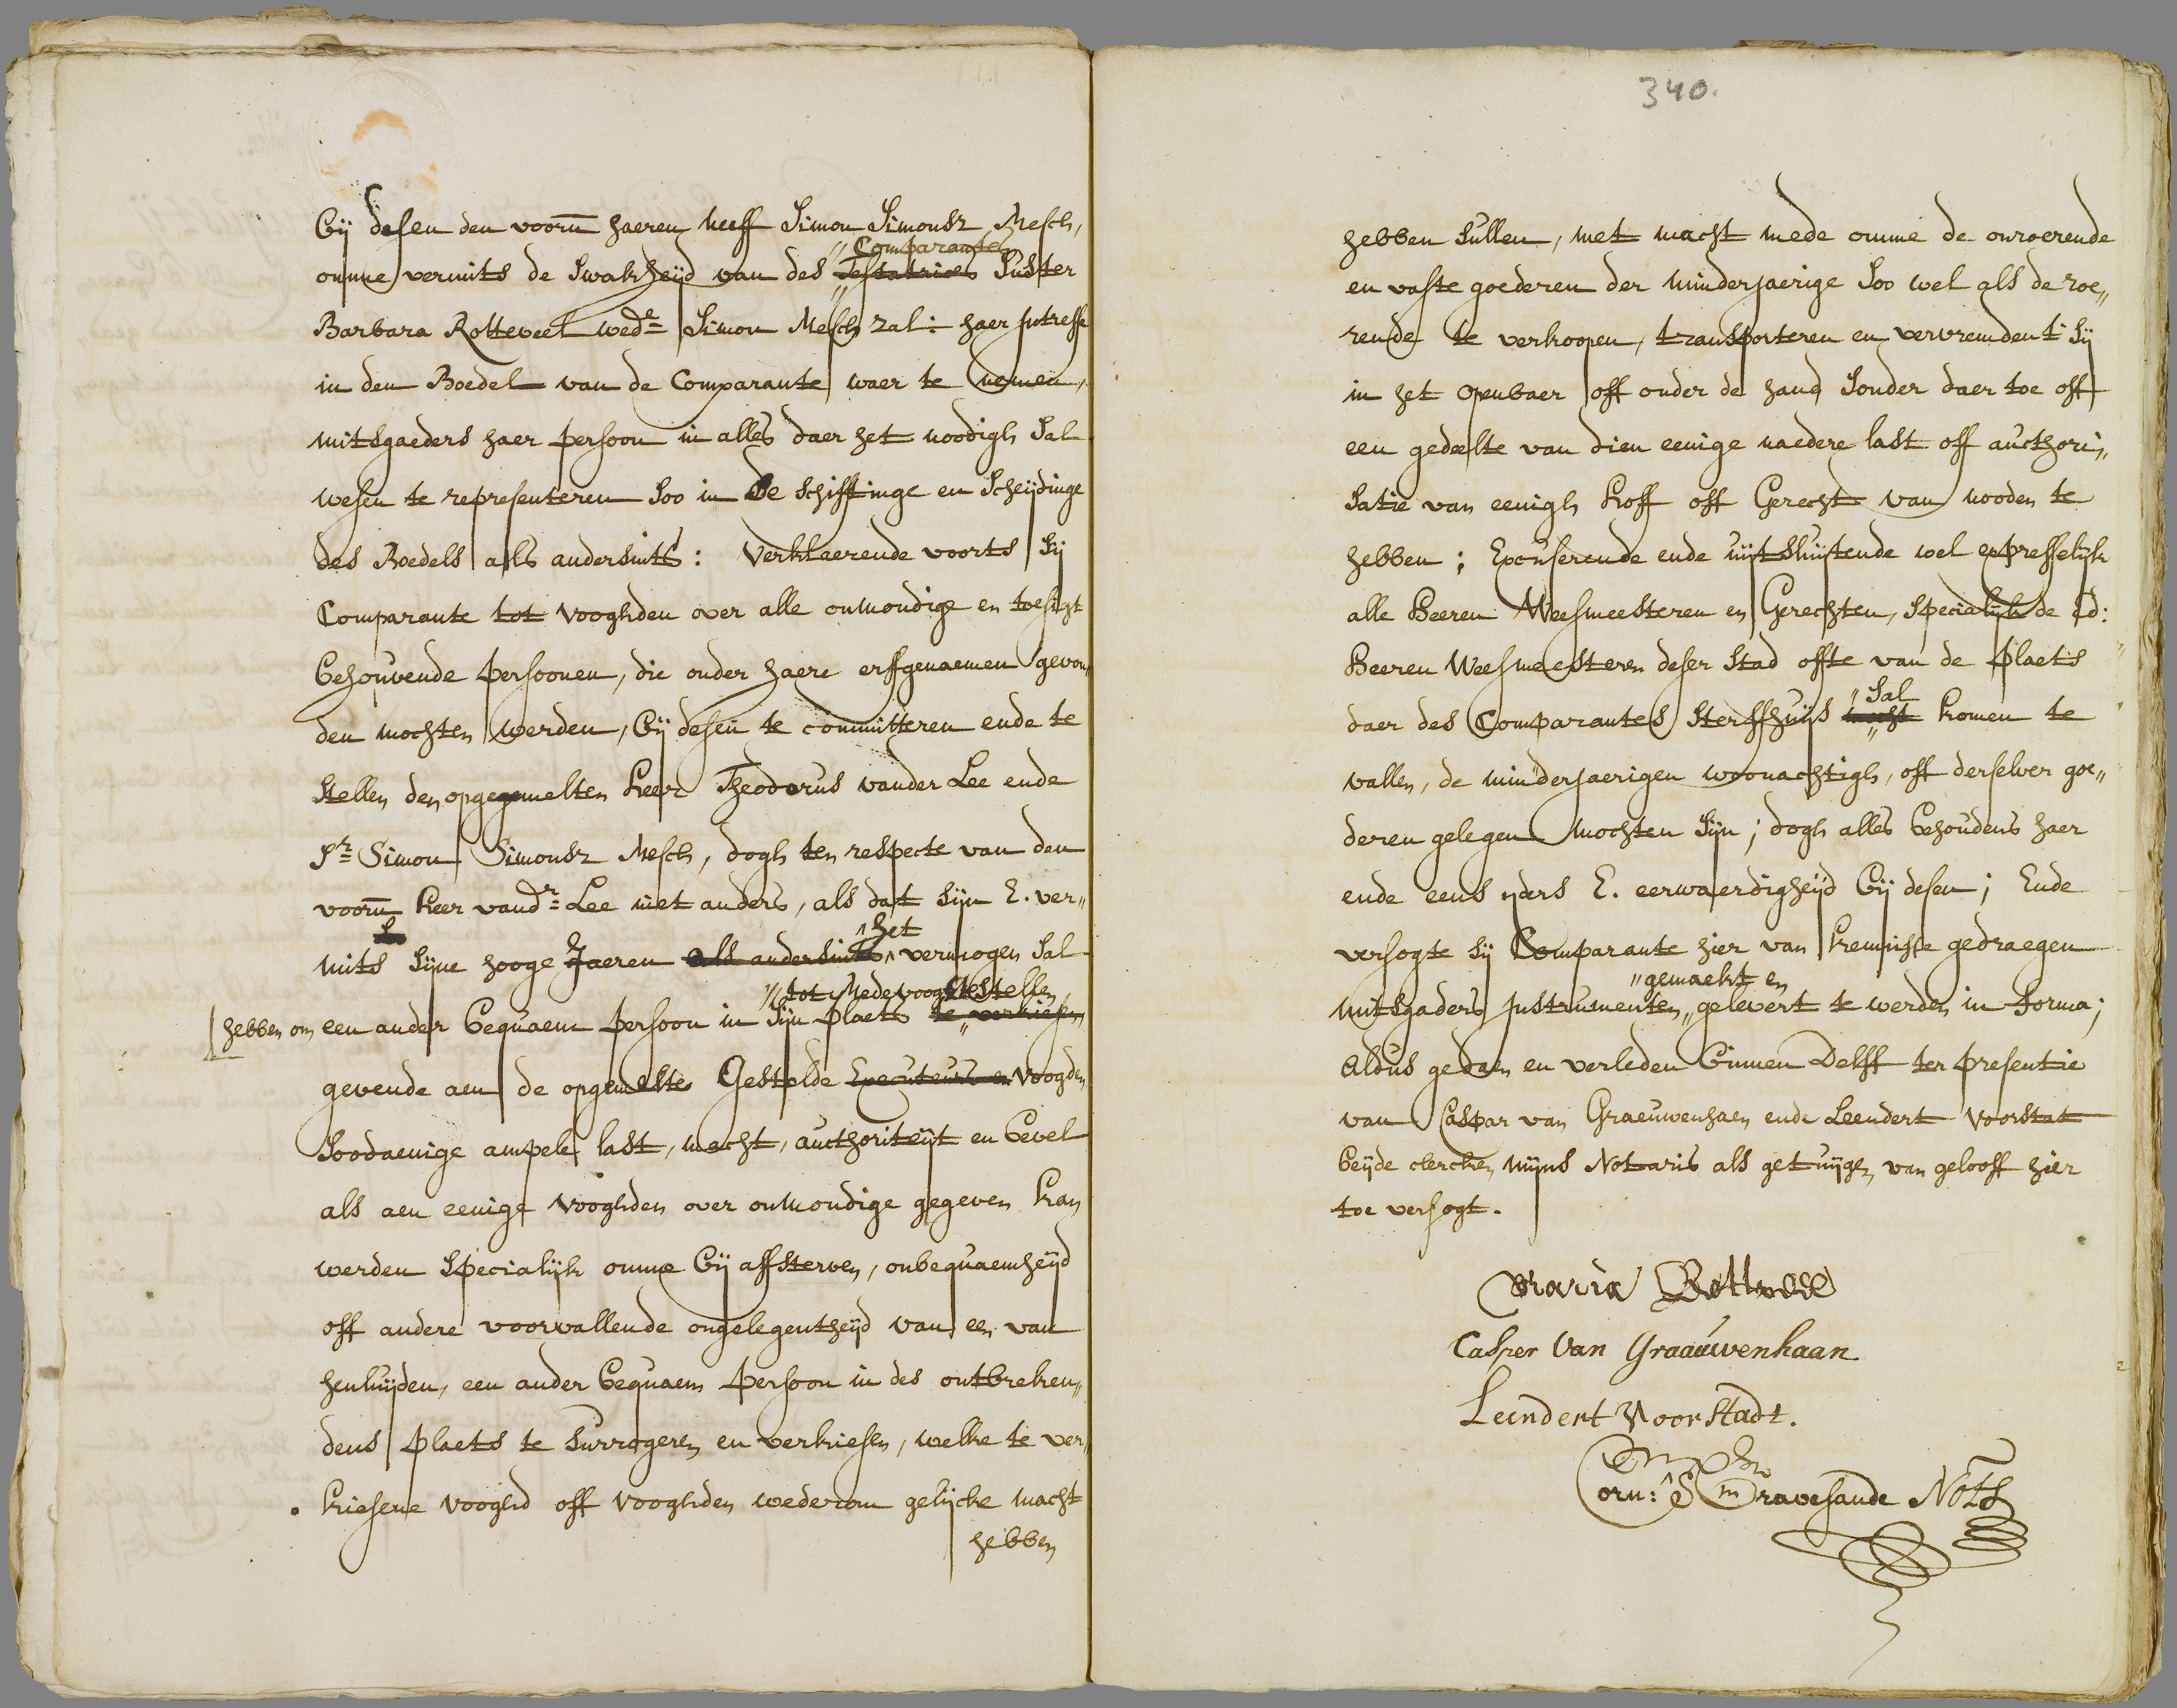 bij desen den voorn haeren neeff Simon Simonsz Mesch,
Comparantes
omme vermits de swakheijd van des Testatrices Suster
Barbara Rotteveel wedr Simon Mesch zal: haer Intresse
in den Boedel van de Comparante waer te nemen,
mitsgaeders haer persoon in alles daer het noodigh sal
wesen te representeren soo in de schiftinge en scheijdinge
des Boedels als andersints: Verklaerende voorts sij
Comparante tot vooghden over alle onmondige en toesigt
behouvende persoonen, die onder haere erffgenaemen gevon„
den mochten werden, bij desen te committeren ende te
stellen den opgegemelten heer Theodorus vander Lee ende
Sr Simon Simonsz Mesch, dogh ten respecte van den
voorn heer vandr Lee niet anders, als dat sijn E. ver„
het
mits sijne hooge Jaeren als andersints vermogen sal
tot Medevooght te stellen
hebben om een ander bequaem persoon in sijn plaets te verkiesen
gevende aen de opgemelte Gestelde Executeurs en voogden
soodaenige ampele last, macht, aucthoriteijt en bevel
als aen eenige vooghden over onmondige gegeven kan
werden specialijk omme bij affsterven, onbequaemheijd
off andere voorvallende ongelegentheijd van een van
henluijden, een ander bequaem persoon in des ontbreken„
dens plaets te surrogeren en verkiesen, welke te ver„
kiesene vooghd off vooghden wederom gelijcke macht
hebben
340.
hebben sullen, met macht mede omme de onroerende
en vaste goederen der minderjaerige soo wel als de roe„
rende te verkoopen, transporteren en vervremden t'sij
in het openbaer off onder de hand sonder daer toe off
een gedeelte van dien eenige naedere last off aucthori„
satie van eenigh hoff off Gerecht van nooden te
hebben; Excuserende ende uijtsluijtende wel expresselijk
alle Heeren Weesmeesteren en Gerechten, specialijk de Ed:
Heeren Weesmeesteren deser stad ofte van de plaets
sal
daer des Comparantes sterffhuijs mocht komen te
vallen, de minderjaerigen woonachtigh, off derselver goe„
deren gelegen mochten sijn; dogh alles behoudens haer
ende eens ijders E. eerwaerdigheijd bij desen; Ende
versogte sij Comparante hier van kennisse gedraegen
gemaekt en
mitsgaders Instrumenten gelevert te werden in forma;
Aldus gedaen en verleden binnen Delff ter presentie
van Caspar van Graeuwenhaen ende Leendert Voorstat
beijde clercken mijns Notaris als getuijgen van gelooff hier
toe versogt.
Maria Rotteveel
Casper van Graauwenhaan
Leendert Voorstadt.
Corn: s' Gravesande Nots